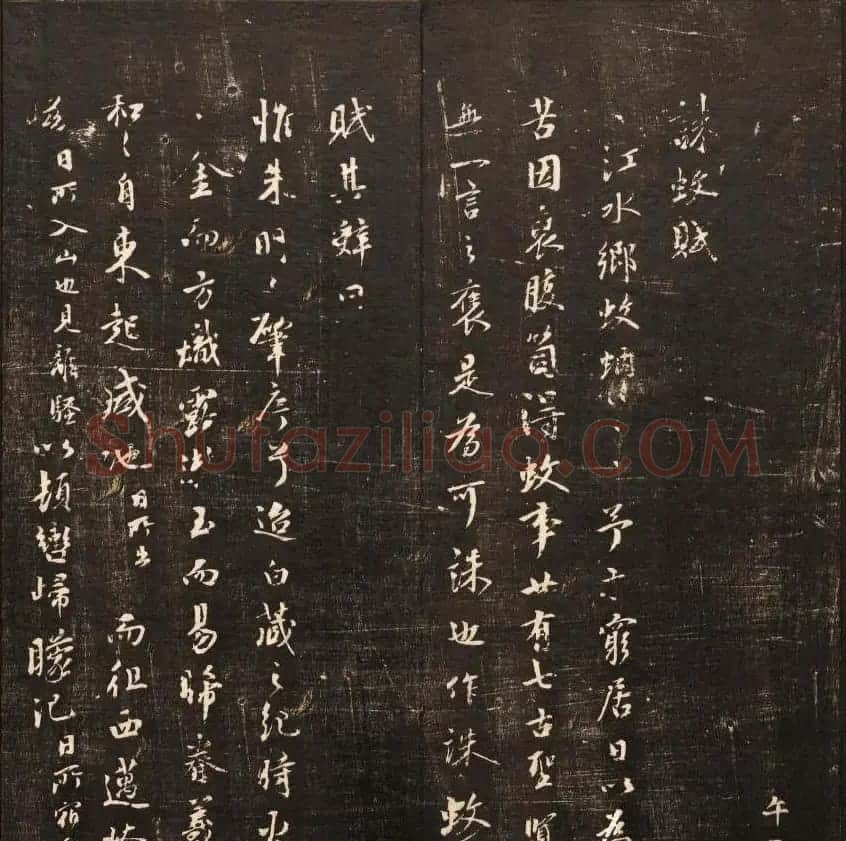 午
誅蚊賦
江水鄉蚊蚋予穷居日以為
苦因裒腹笥得蚊事廿有七古聖賢
無一言之褒是為可誅也作誅蚊
賦其辭曰
惟朱明之肇序兮迨白藏之紀時火
金而方熾露洪玉而易晞羲
和之自東起咸池日所出而徂西邁
日所入山也見離騷以頓轡歸矇汜日所宿
Shufaziliao.COM